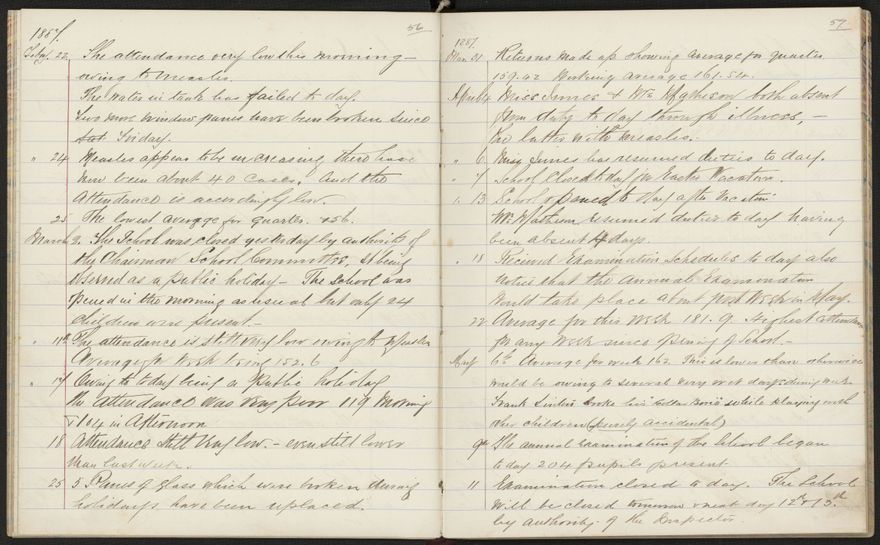 56
1887.
Feby. 22 The attendance very low this morning –
owing to measles.
The water in tank has failed to day.
Two more window panes have been broken since
Friday.
" 24 Measles appear to be increasing, there have
now been about 40 cases, and the
attendance is accordingly low.
25 The lowest average for quarter. 156.
March 2. The School was closed yesterday by authority of
the Chairman School Committee, it being
observed as a public holiday – The School was
opened in the morning as usual but only 24
children were present –
" 11th The attendance is still very low owing to Measles
average for week being 152.6
" 17 Owing to to day being a public holiday
the attendance was very poor 119 Morning
& 104 in Afternoon
18 Attendance still very low. – even still lower
than last week.
25 5 Panes of glass which were broken during
holidays have been replaced.
57
1887.
Mar. 31 Returns made up showing average for quarter
159.42 Working average 161.54.
April 4 Miss Innes & Mr Matheson both absent
from duty to day through illness, –
the latter with measles.
" 6 Miss Innes has resumed duties to day.
" 7 School closed to day for Easter Vacation.
" 13 School opened to day after Vacation
Mr Matheson resumed duties to day having
been absent 4 days.
" 18 Received Examination Schedules to day also
notice that the annual Examination
would take place about first week in May.
22 Average for this week 181.9. Highest attendance
for any week since opening of School. –
May 6th Average for week 162. This is lower than otherwise
would be owing to several very wet days during week.
Frank broke his Collar Bone while playing with
other children (purely accidental)
9th The annual examination of the School began
to day 204 pupils present
11 Examination closed to day. The School
will be closed tomorrow & next day 12th & 13th
by authority of the Inspector.